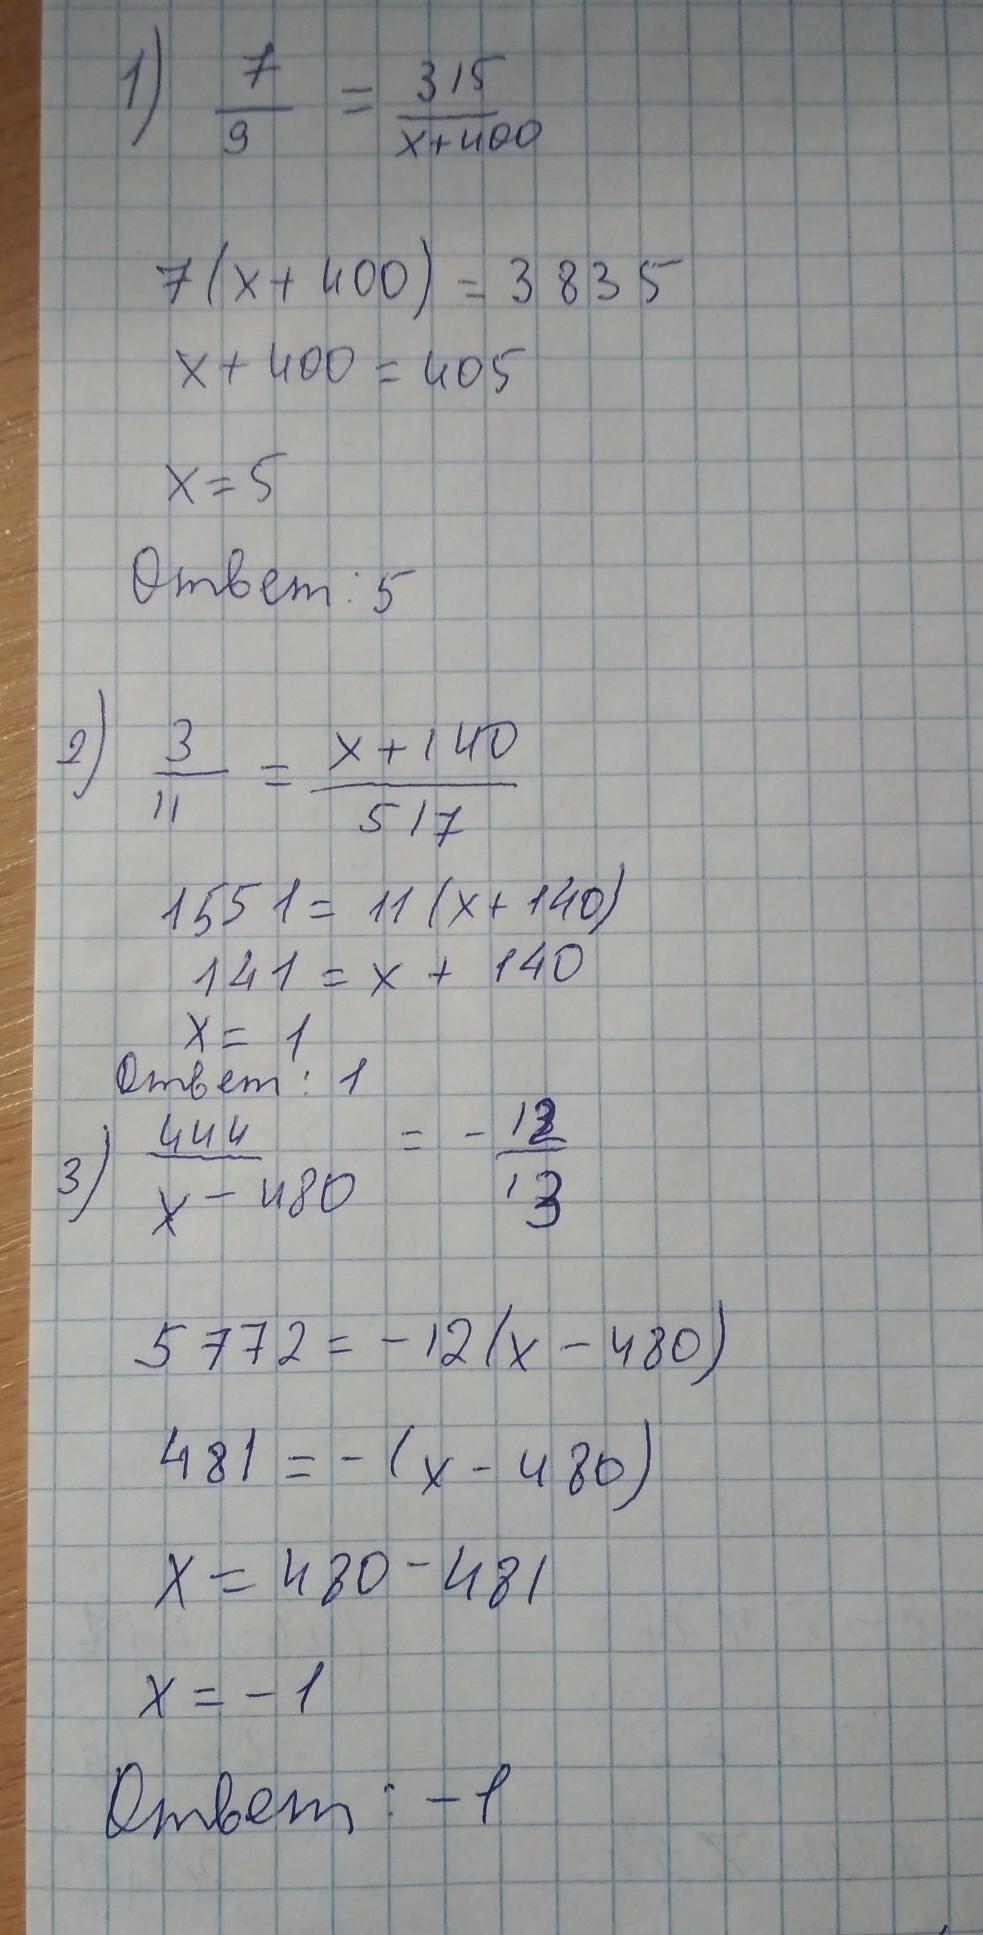 1) 7/9 = 315/(x+400)
7(x+400) = 3835
x+400 = 405
x = 5
Ответ: 5
2) 3/11 = (x+140)/517
1551 = 11(x+140)
141 = x + 140
x = 1
Ответ: 1
3) 444/(x-480) = -12/13
5772 = -12(x-480)
481 = -(x-480)
x = 480-481
x = -1
Ответ: -1